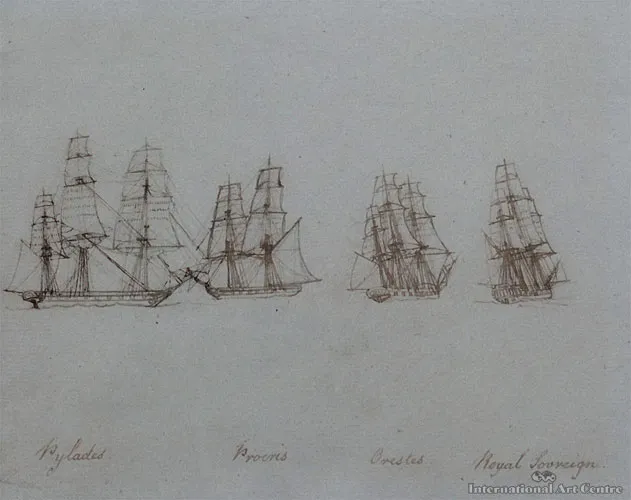 Pylades. Procris Orestes Royal Sovreign.
International Art Centre